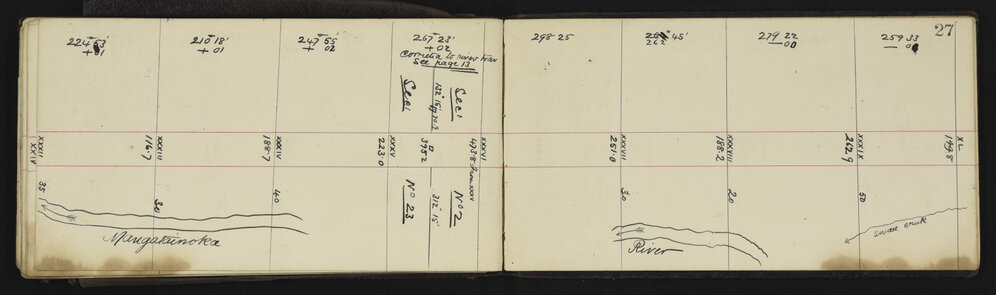 27
224 53'
+ 01
210 18'
+ 01
247 55'
+ 02
267 23'
+ 02
Correction to river trav
See page 13
298 25
262 45'
279 22
— 00
259 33
Sec 1
132° 15'
Sec 1
XXXII
XXXIII
116.7
XXXIV
188.7
XXXV
223.0
395.2
XXXVI
433.8 from XXXV
XXXVII
251.0
XXXVIII
188.2
XXXIX
262.9
XL
149.8
No 23
312° 15'
No 2
35
30
40
30
20
50
Mangatainoka
River
Small creek